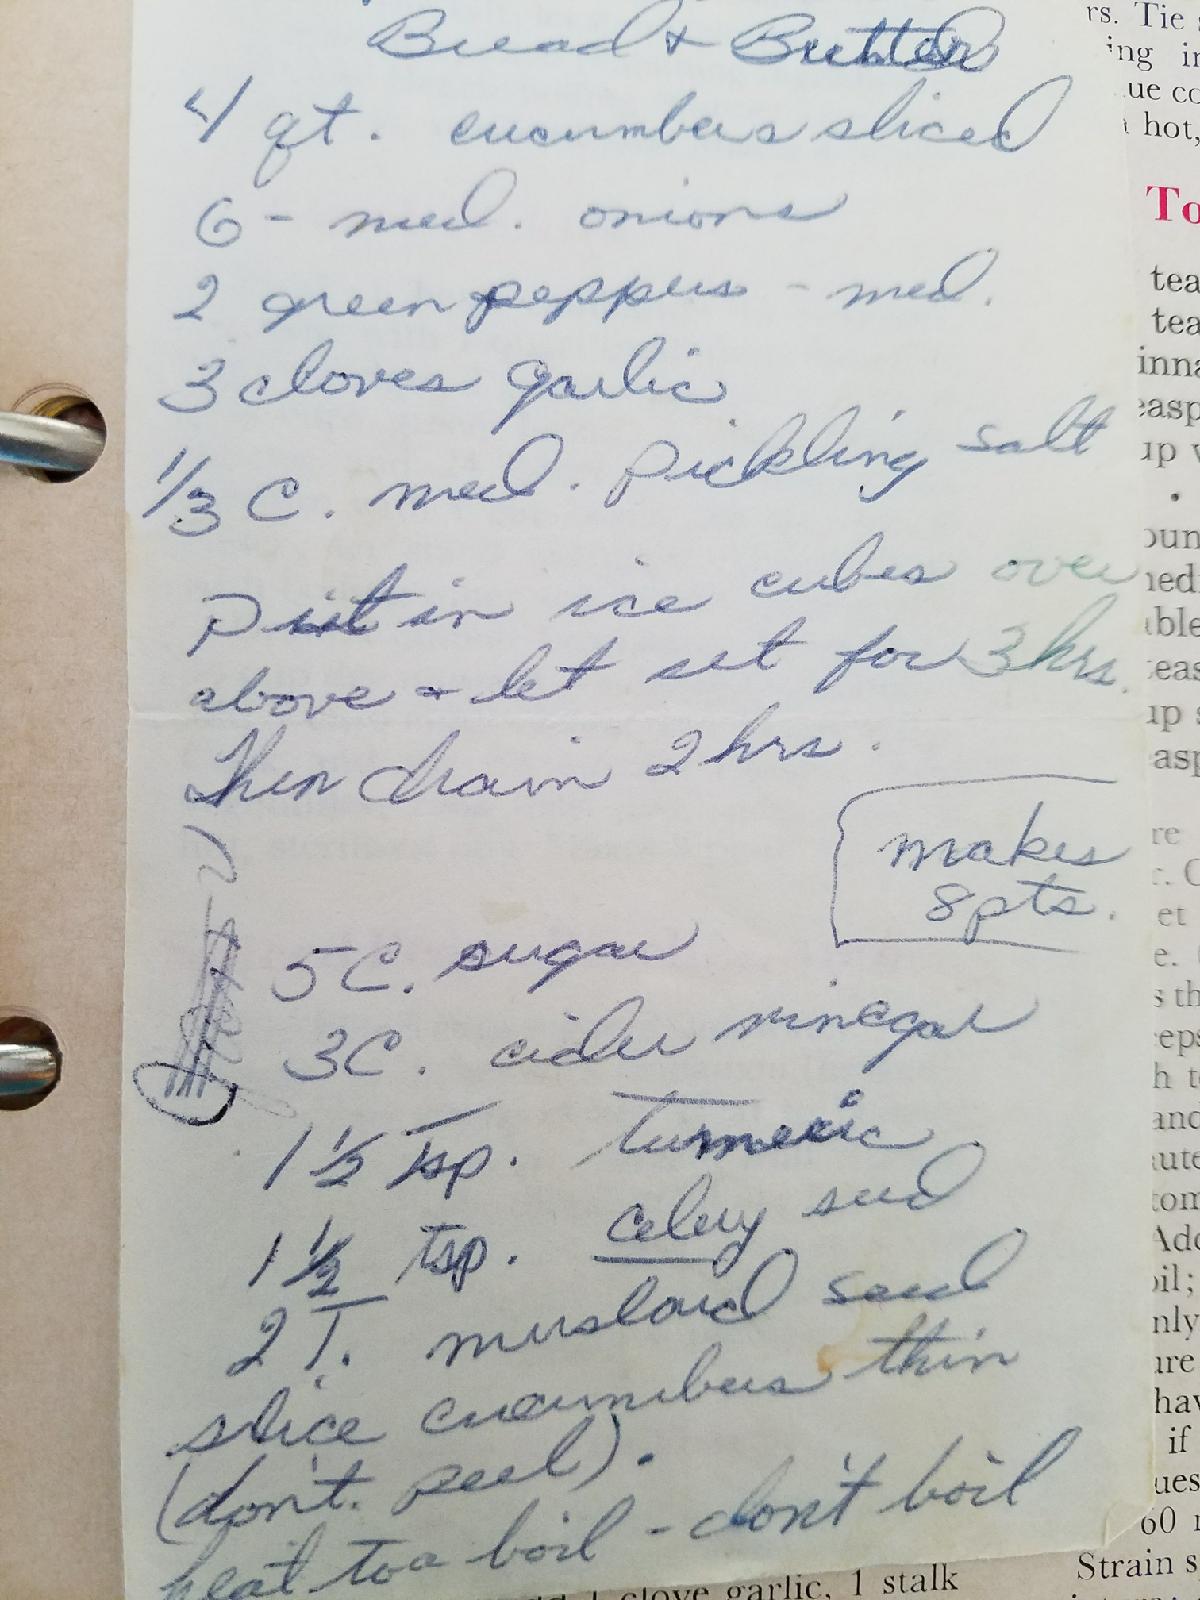 Bread & Butter
4 qt. cucumbers sliced
6 - med. onions
2 green peppers - med.
3 cloves garlic
1/3 C. med. pickling salt
Put in ice cubes over
above & let set for 3 hrs.
Then drain 2 hrs.
makes
8 pts.
5 C. sugar
3 C. cider vinegar
1 1/2 Tsp. turmeric
1 1/2 tsp. celery seed
2 T. mustard seed
slice cucumbers thin
(don't. peel).
heat to a boil - don't boil
rs. Tie
ing
hot,
To
tea
tea
up
up
re
et
e.
Add
if
60
Strain
clove garlic, 1 stalk